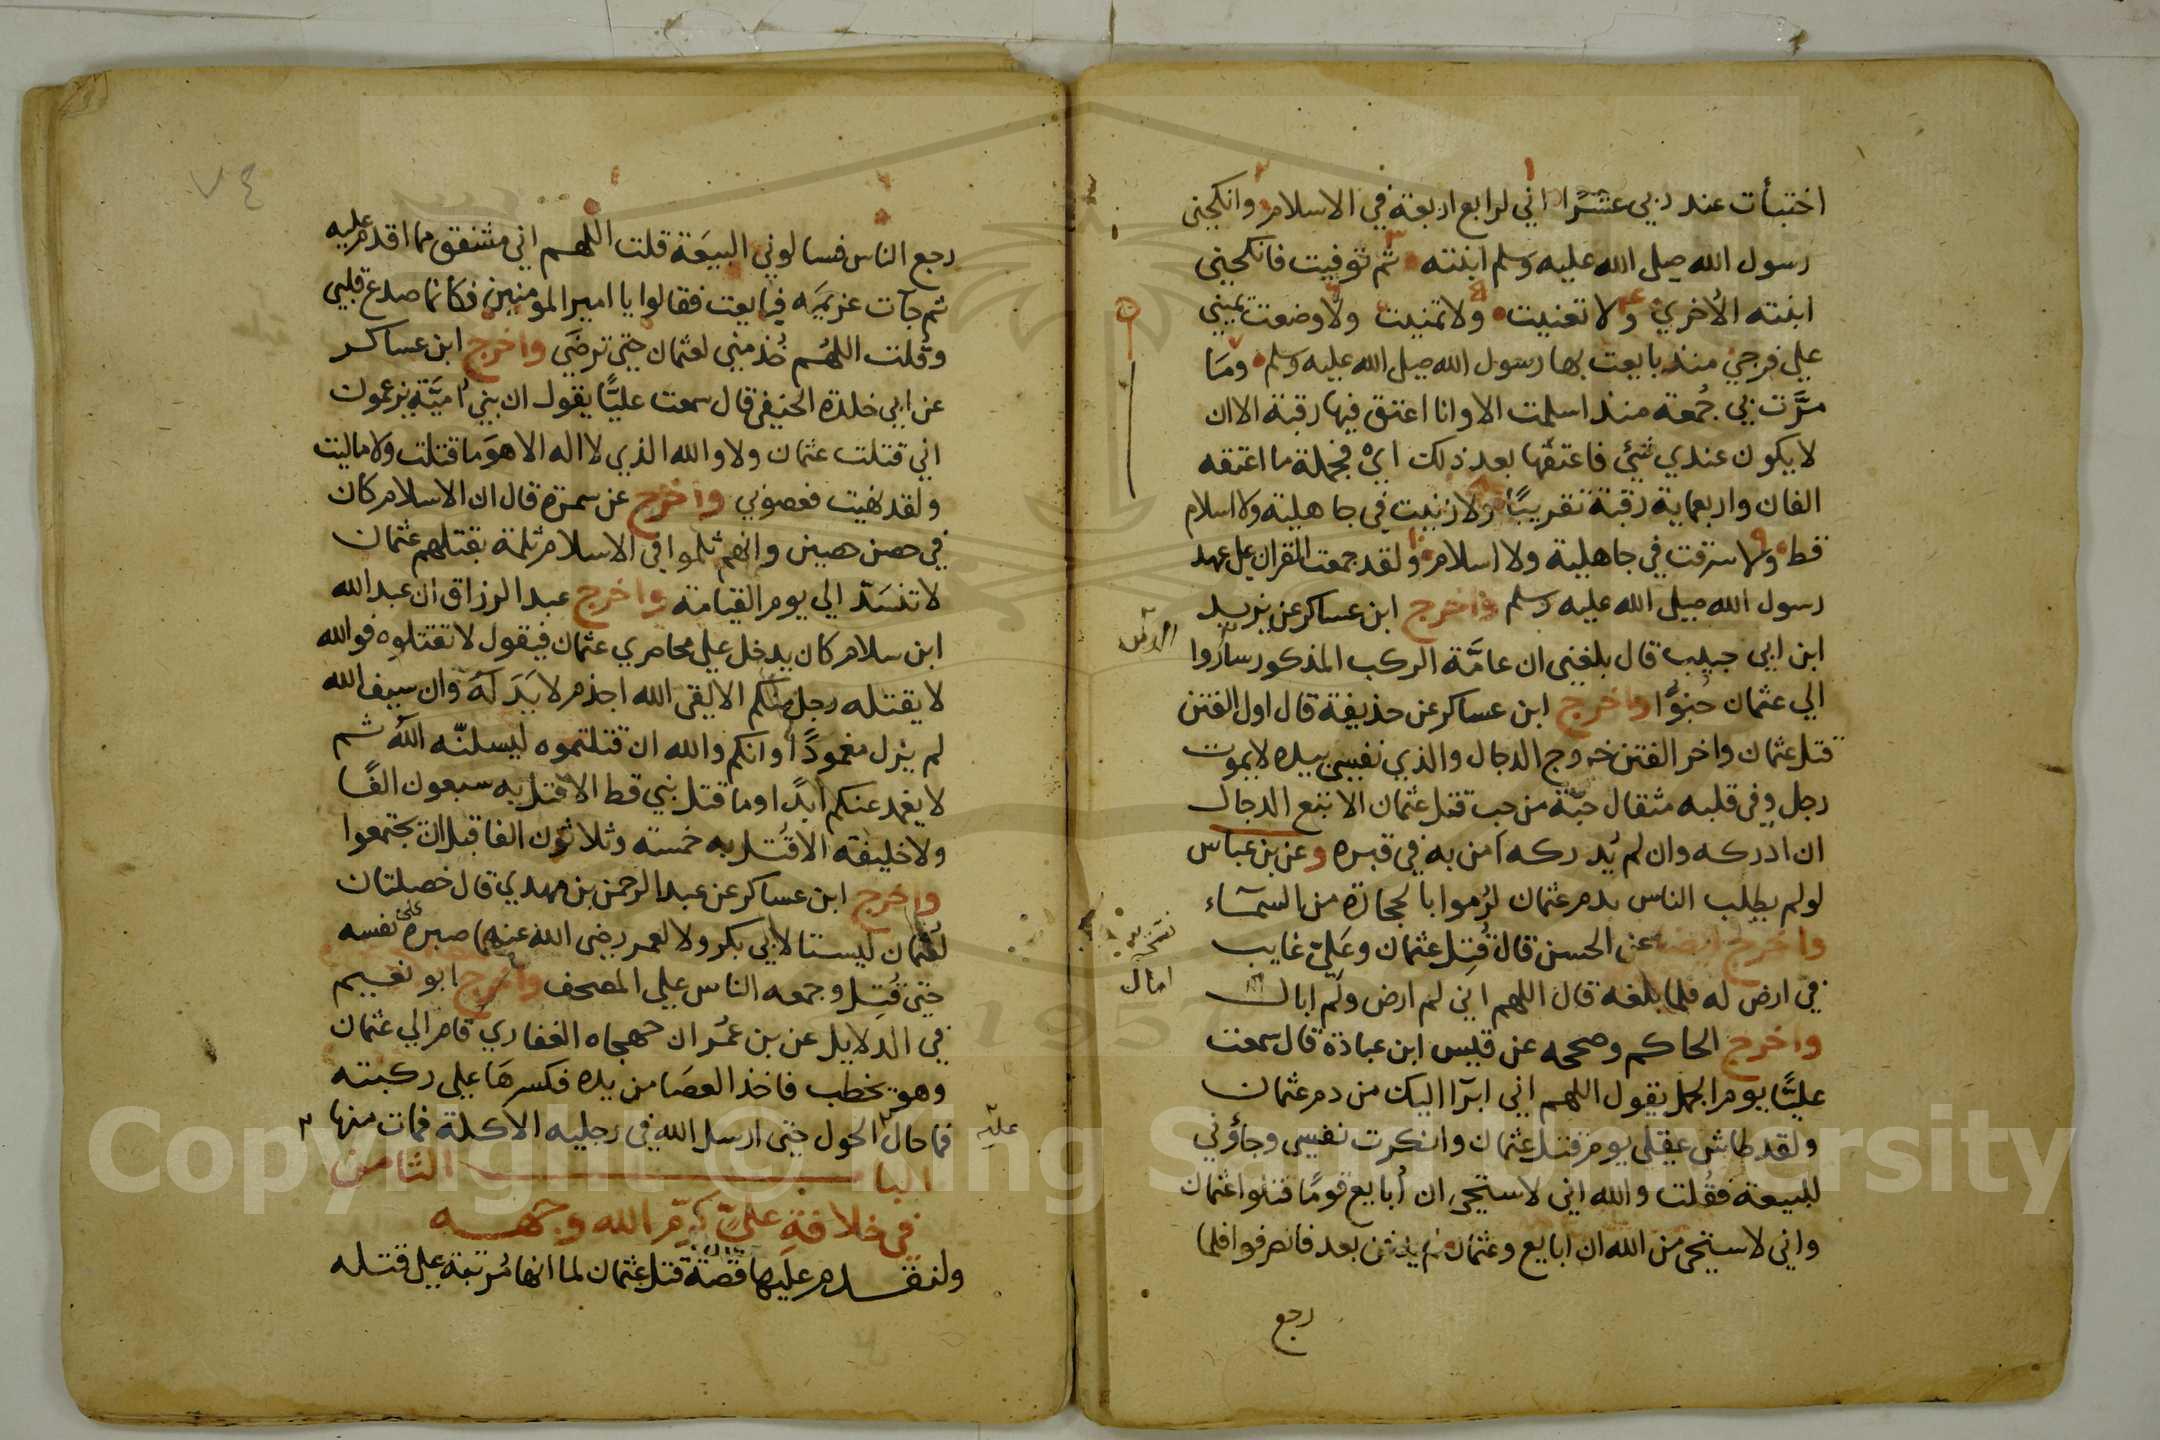 اختبأت عند ربي عشرا اني لرابع اربعة في الاسلام وانكحني
رسول الله صلي الله عليه وسلم ابنته ثم توفيت فانكحني
ابنته الاخري ولا تغنيت ولا تمنيت ولا وضعت يميني
علي فرجي منذ بايعت بها رسول الله صلي الله عليه وسلم وما
مرّت بي جُمعة منذ اسلمت الا وانا اعتق فيها رقبة الا ان
لا يكون عندي شئ فاعتقها بعد ذلك اي فجملة ما اعتقه
الفان واربعماية رقبة تقريبًا ولا زنيت في جاهلية ولا اسلام
قط ولا سرقت في جاهلية ولا اسلام ولقد جمعت القران علي عهد
رسول الله صلي الله عليه وسلم واخرج ابن عساكر عن يزيد
ابن ابي حبيب قال بلغني ان عامّة الركب المذكور ساروا
الي عثمان جُنوًّا واخرج ابن عساكر عن حذيفة قال اول الفتن
قتل عثمان واخر الفتن خروج الدجال والذي نفسي بيده لا يموت
رجل وفي قلبه مثقال حبّة من حب قتل عثمان الا تبع الدجال
ان ادركه وان لم يُدركه آمن به في قبره وعن بن عباس
لو لم يطلب الناس بدم عثمان لرُموا بالحجارة من السمآء
واخرج ايضا عن الحسن قال قُتِل عثمان وعَليّ غايب
في ارض له فلما بلغه قال اللهم اني لم ارض ولم ابال
واخرج الحاكم وصححه عن قيس ابن عبادة قال سمعت
عليًّا يوم الجمل يقول اللهم اني ابرآ اليك من دم عثمان
ولقد طاش عقلي يوم قتل عثمان وانكرت نفسي وجاؤني
للبيعة فقُلت والله اني لاستحي ان أبايع قومًا قتلوا عثمان
واني لاستحي من الله ان ابايع وعثمان لم يدفن بعد فانصرفوا فلما
رجع
نسخة
امال
٧٤
رجع الناس فسالوني البيعَة قلت اللهم اني مشفق مما اقدم عليه
ثم جآت عزيمَه فبايعت فقالوا يا امير المومنين فكانما صدع قلبي
وقُلت اللهُم خُذ مني لعثمان حتي ترضَي واخرج ابن عساكر
عن ابي خلدة الحنيفي قال سمعت عليًّا يقول ان بني أميّة يزعمون
اني قتلت عثمان ولا والله الذي لا اله الا هوَ ما قتلت ولا ماليت
ولقد نهيت فعصوني واخرج عن سمرة قال ان الاسلام كان
في حصن حصين وانهم ثلموا في الاسلام ثلمة بقتلهم عثمان
لا تنسَدّ الي يوم القيامة واخرج عبد الرزاق ان عبد الله
ابن سلام كان يدخل علي محاصري عثمان فيقول لا تقتلوه فوالله
لا يقتله رجل منكم الا لقي الله اجذم لا يَدَ لَهُ وان سيف الله
لم يزل مغمودًا وانكم والله ان قتلتموه ليسلنّه اللّه ثم
لا يغمد عنكم ابدًا وما قتل نبي قط الا قتل به سبعون الفًا
ولا خليفة الا قُتل به خمسة وثلاثون الفا قبل ان يجتمعوا
واخرج ابن عساكر عن عبد الرحمن بن مهدي قال خصلتان
لعُثمان ليستا لابي بكر ولا لعمر رضي الله عنهما صبره علي نفسه
حتي قُتِل وجمعه الناس علي المصحف واخرج ابو نعيم
في الدلايل عن بن عمُر ان جهجاه الغفاري قام الي عثمان
وهو يخطب فاخذ العصَا من يده فكسرهَا علي ركبته
فما حال الحول حتي ارسل الله في رجليه الاكلة فمات منها
عليه
البا ب الثامن
في خلافةِ عليّ كرّم الله وجهه
ولنقدم عليها قصّة قتل عثمان لما انها مُرتبة علي قتله
Copyright © King Saud University
1957